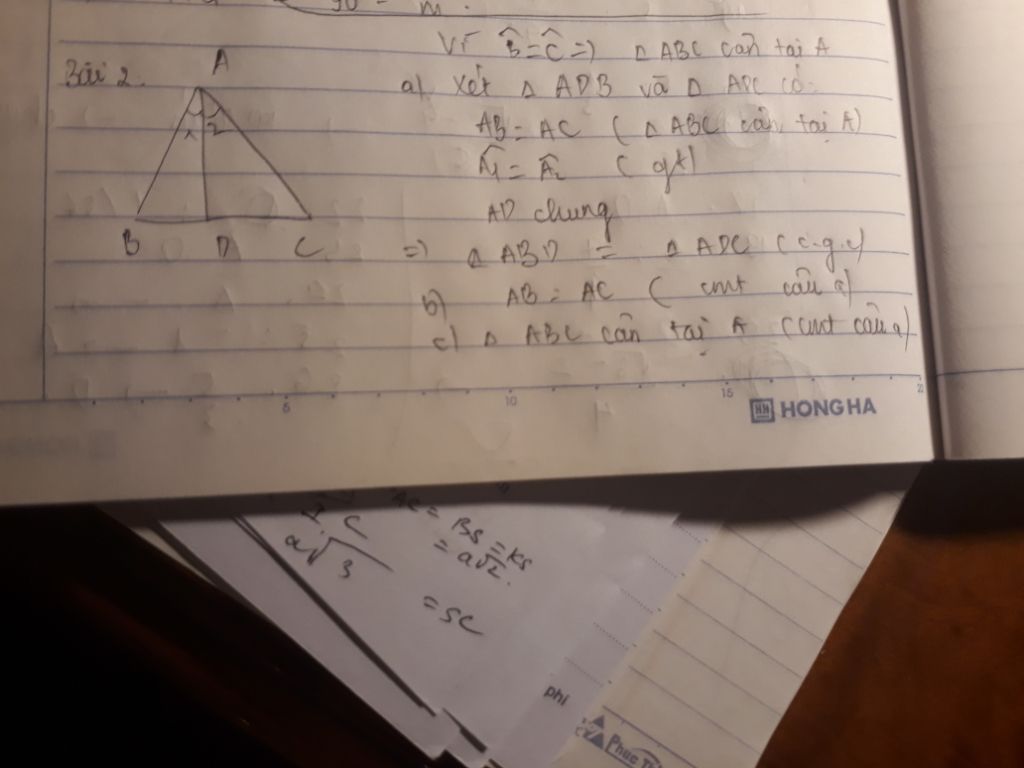 90
m.
Vì B̂ = Ĉ => Δ ABC cân tại A
Bài 2.
A
a) Xét Δ ADB và Δ ADC có:
AB = AC ( Δ ABC cân tại A)
1 2
Â1 = Â2 ( gt)
AD chung
B D C
=> Δ ABD = Δ ADC ( c.g.c)
b) AB = AC ( cmt câu a)
c) Δ ABC cân tại A (cmt câu a)
5 10 15
HH HONG HA
AC = BS = KS
= a√2.
C
a√3
= SC
phi